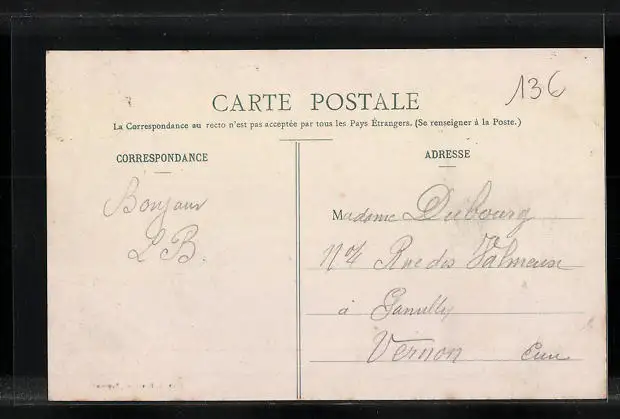 13€
CARTE POSTALE
La Correspondance au recto n'est pas acceptée par tous les Pays Étrangers. (Se renseigner à la Poste.)
CORRESPONDANCE
ADRESSE
Bonjour
L B.
Madame Dubourg
Rue des
à
Vernon Eure